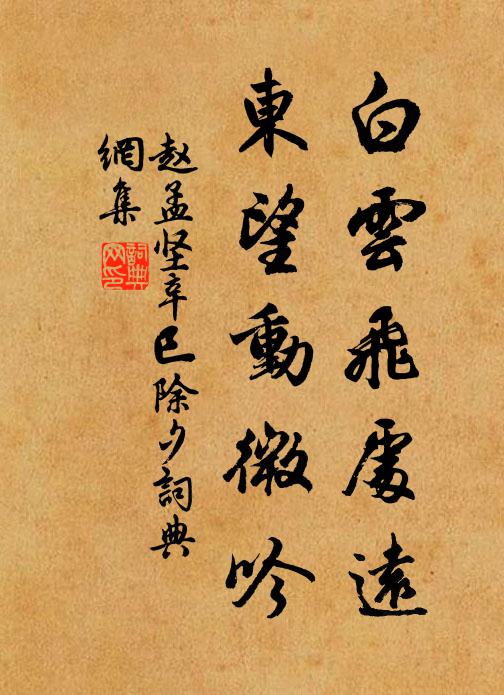 白雲飛處遠
東望動微吟
赵孟坚辛巳除夕詞典
網集
詞典
網印